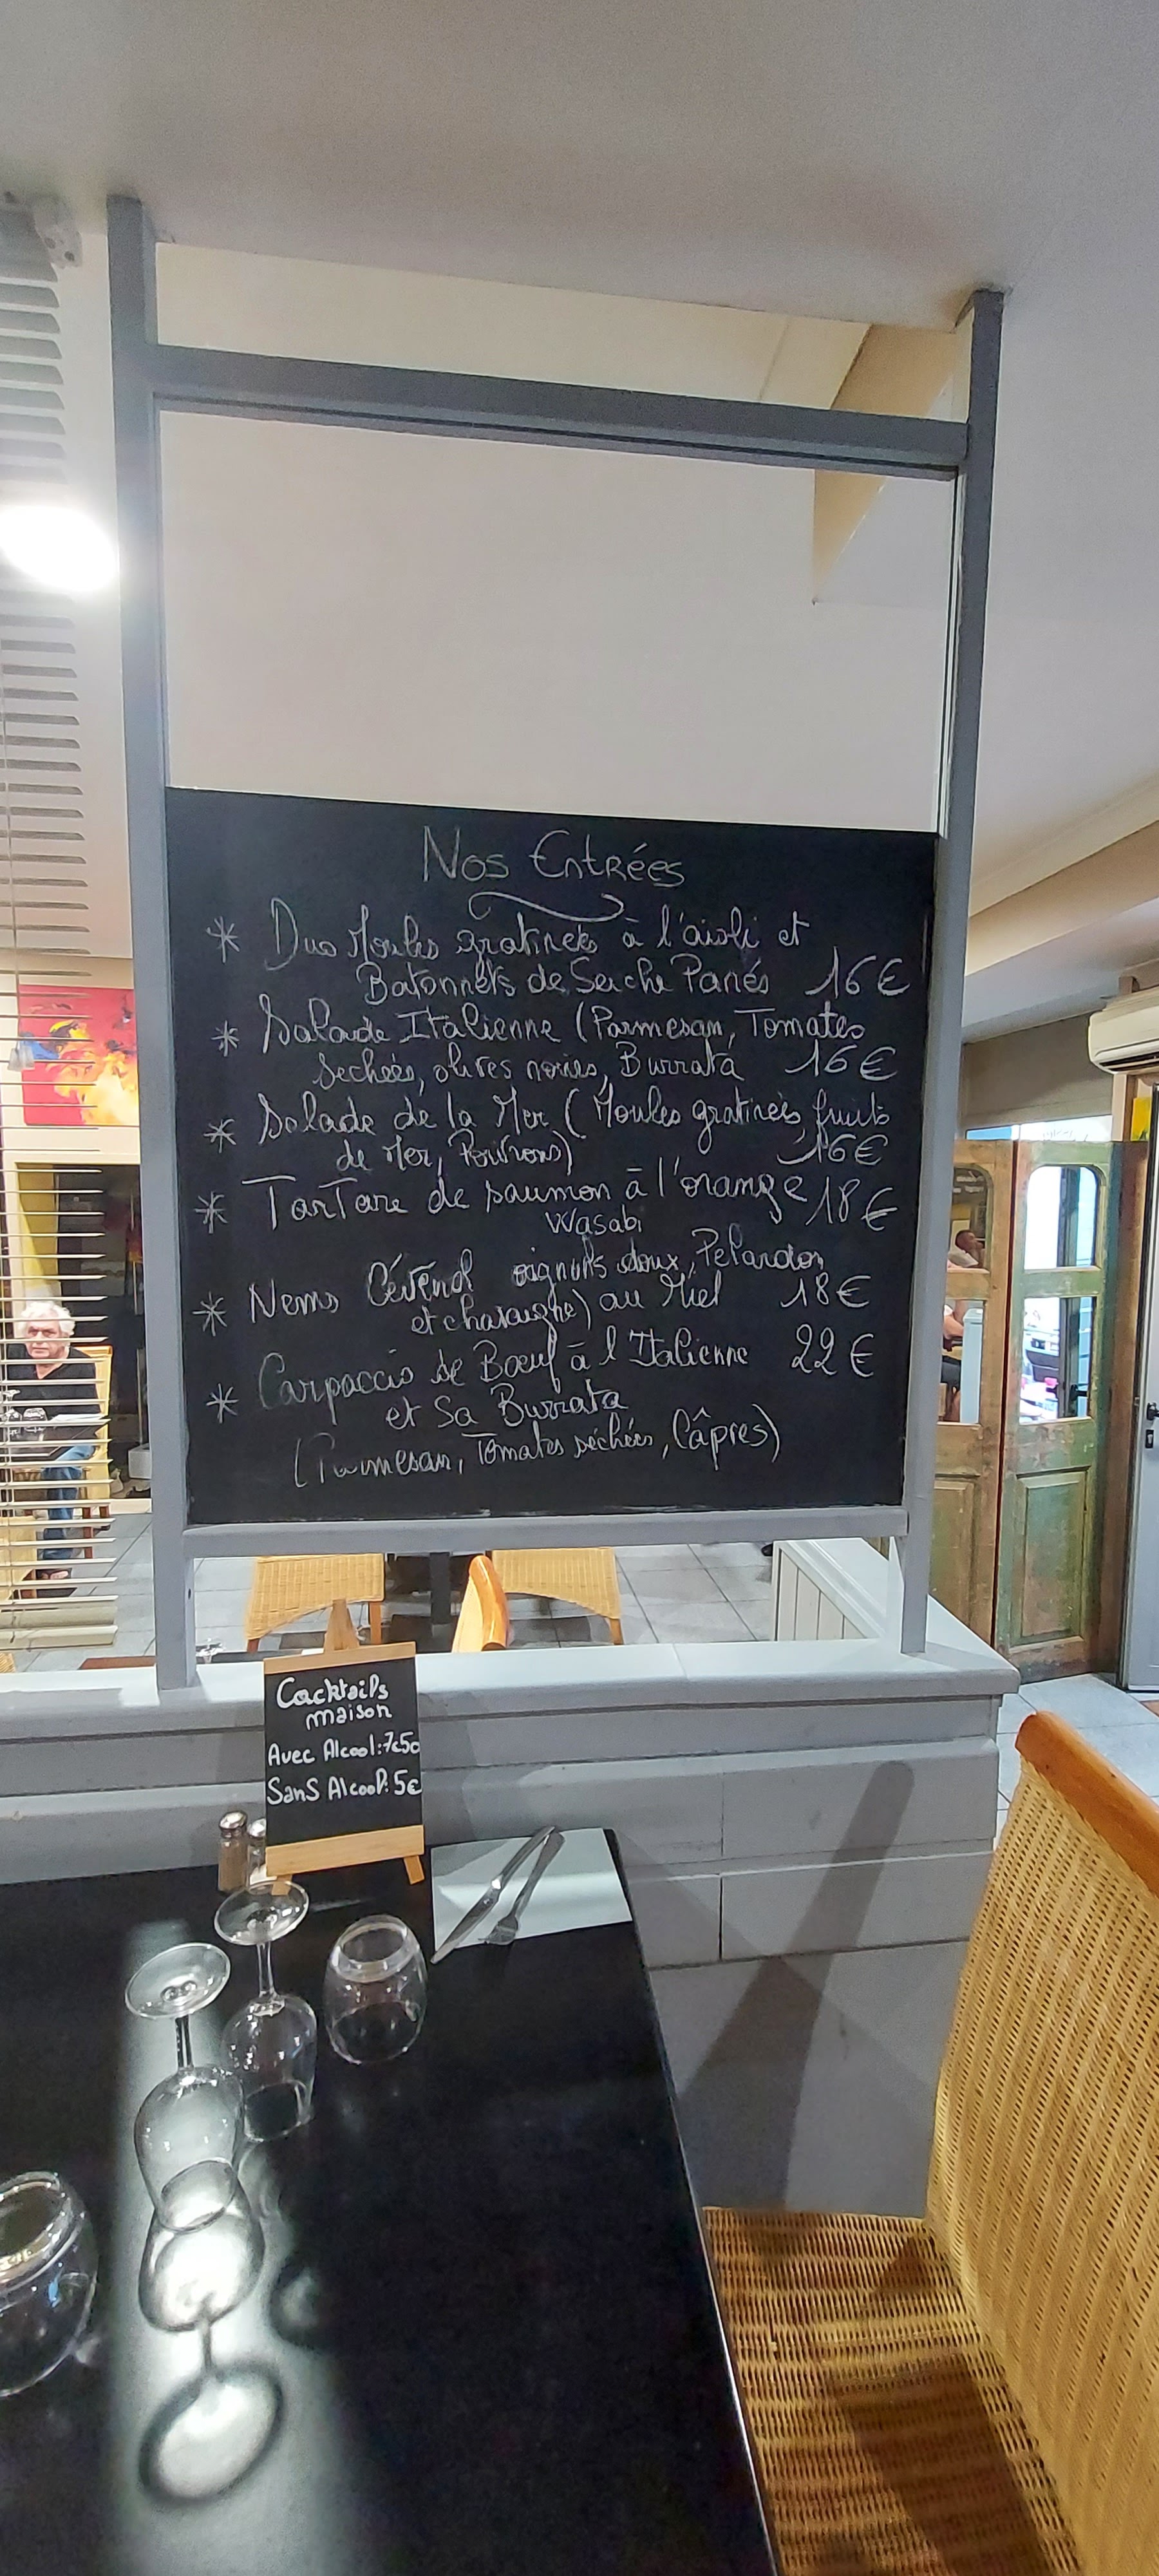 Nos Entrées
* Duo Moules gratinées à l'aïoli et
Batonnets de Seiche Panés 16€
* Salade Italienne (Parmesan, Tomates
Sechées, olives noires, Burrata 16€
* Salade de la Mer (Moules gratinées, fruits
de Mer, Poivrons) 16€
* TarTare de saumon à l'orange 18€
Wasabi
oignons doux, Pelardon
* Nems Cévenol au Miel 18€
et chataigne)
* Carpaccio de Boeuf à l'Italienne 22€
et Sa Burrata
(Parmesan, Tomates séchées, Câpres)
Cacktails
maison
Avec Alcool: 7€50
Sans Alcool: 5€